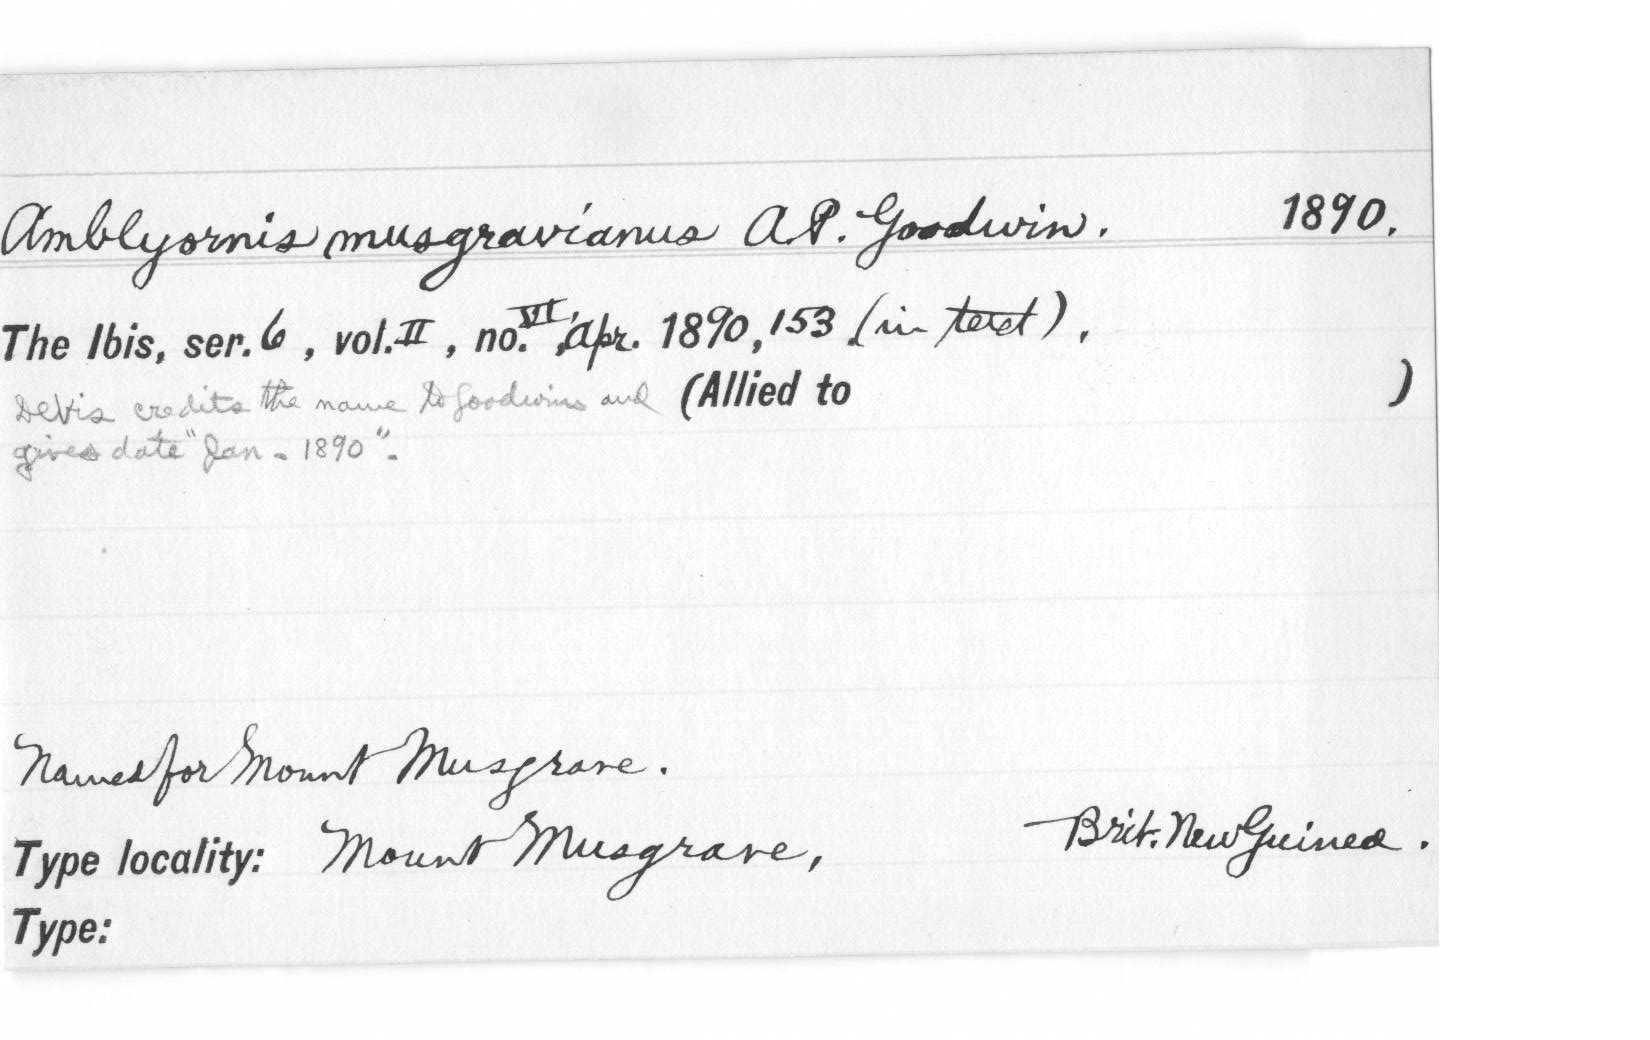 Amblyornis musgravianus A.P. Goodwin. 1890.
The Ibis, ser. 6, vol. II, no. VI, Apr. 1890, 153 (in text).
DeVis credits the name to Goodwin and (Allied to )
gives date "Jan. 1890".
Named for Mount Musgrave.
Type locality: Mount Musgrave, Brit. New Guinea.
Type: